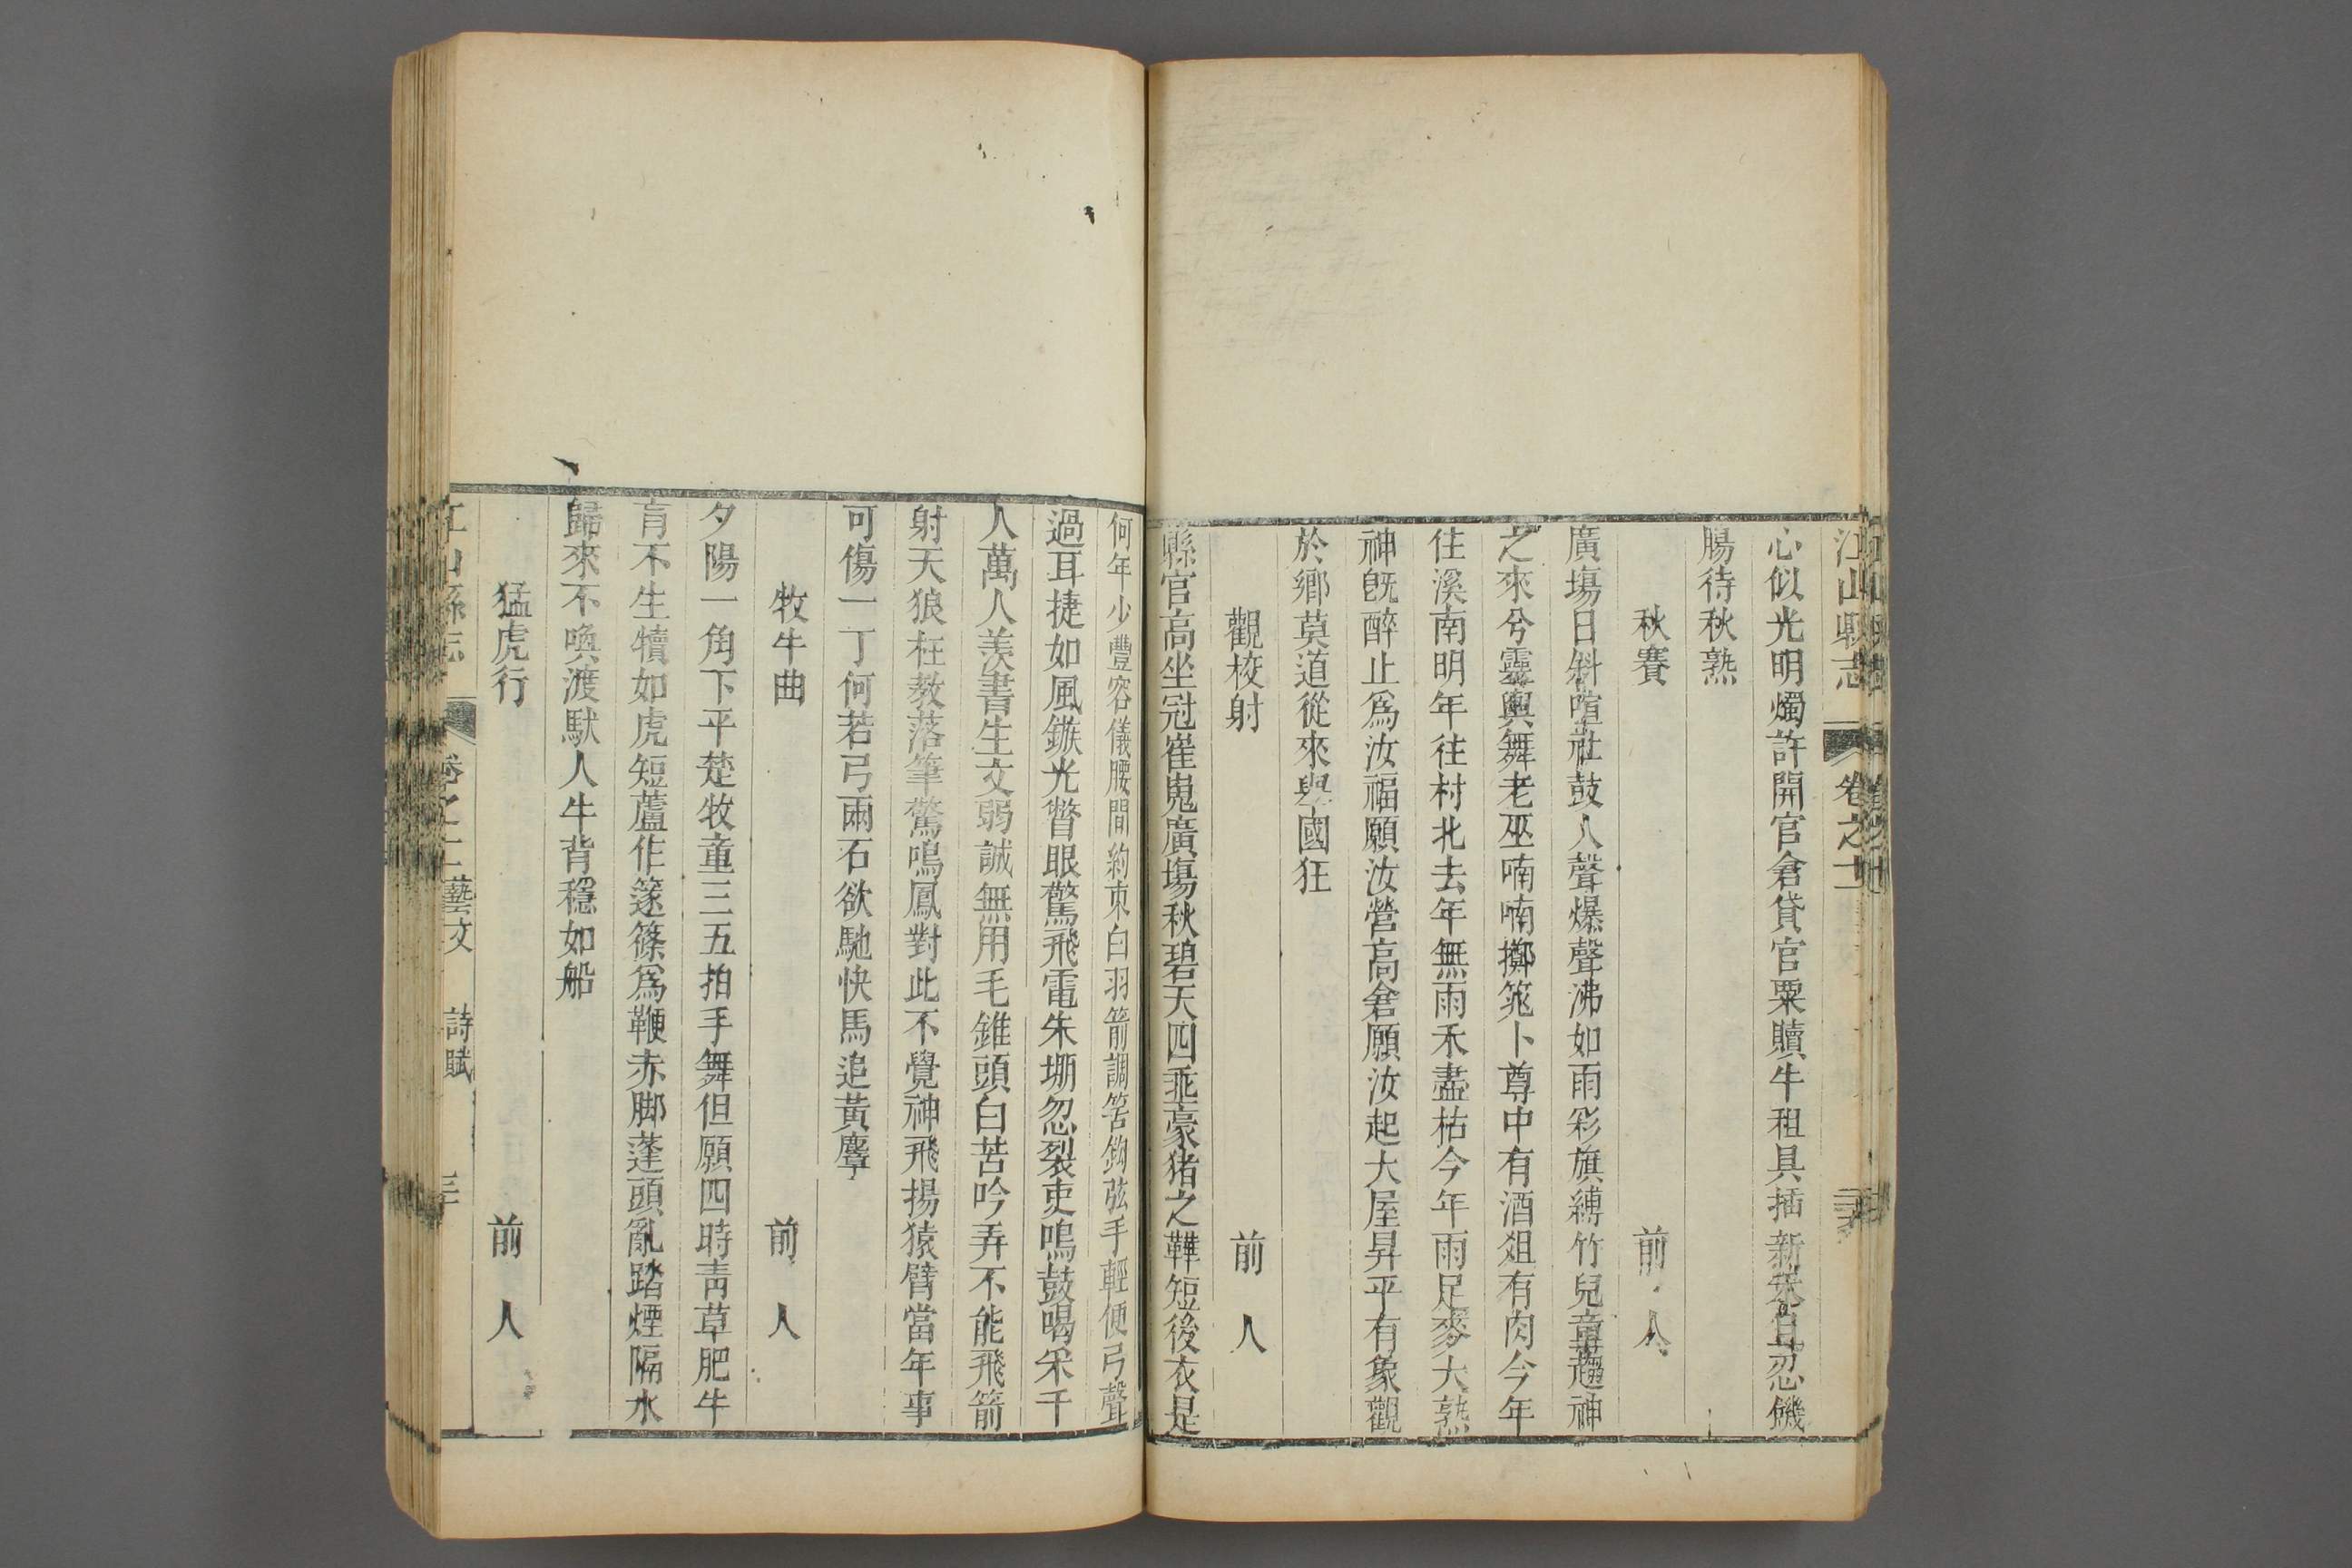 江山縣志 卷之十一
心似光明燭許開官倉貸官粟贖牛租具插新禾且忍饑
腸待秋熟
秋賽 前人
廣場日斜喧社鼓人聲爆聲沸如雨彩旗縛竹兒童趨神
之來兮靈輿舞老巫喃喃擲筊卜尊中有酒俎有肉今年
往溪南明年往村北去年無雨禾盡枯今年雨足麥大熟
神旣醉止爲汝福願汝營高倉願汝起大屋昇平有象觀
於鄉莫道從來舉國狂
觀校射 前人
縣官高坐冠崔嵬廣場秋碧天四垂豪猪之鞾短後衣是
何年少豐容儀腰間約束白羽箭調筈鉤弦手輕便弓聲
過耳捷如風鏃光瞥眼驚飛電朱堋忽裂吏鳴鼓喝采千
人萬人羨書生文弱誠無用毛錐頭白苦吟弄不能飛箭
射天狼枉教落筆驚鳴鳳對此不覺神飛揚猿臂當年事
可傷一丁何若弓兩石欲馳快馬追黃麞
牧牛曲 前人
夕陽一角下平楚牧童三五拍手舞但願四時靑草肥牛
肓不生犢如虎短蘆作篴篠爲鞭赤脚蓬頭亂踏煙隔水
歸來不喚渡馱人牛背穩如船
猛虎行 前人
江山縣志 卷之十一藝文 詩賦